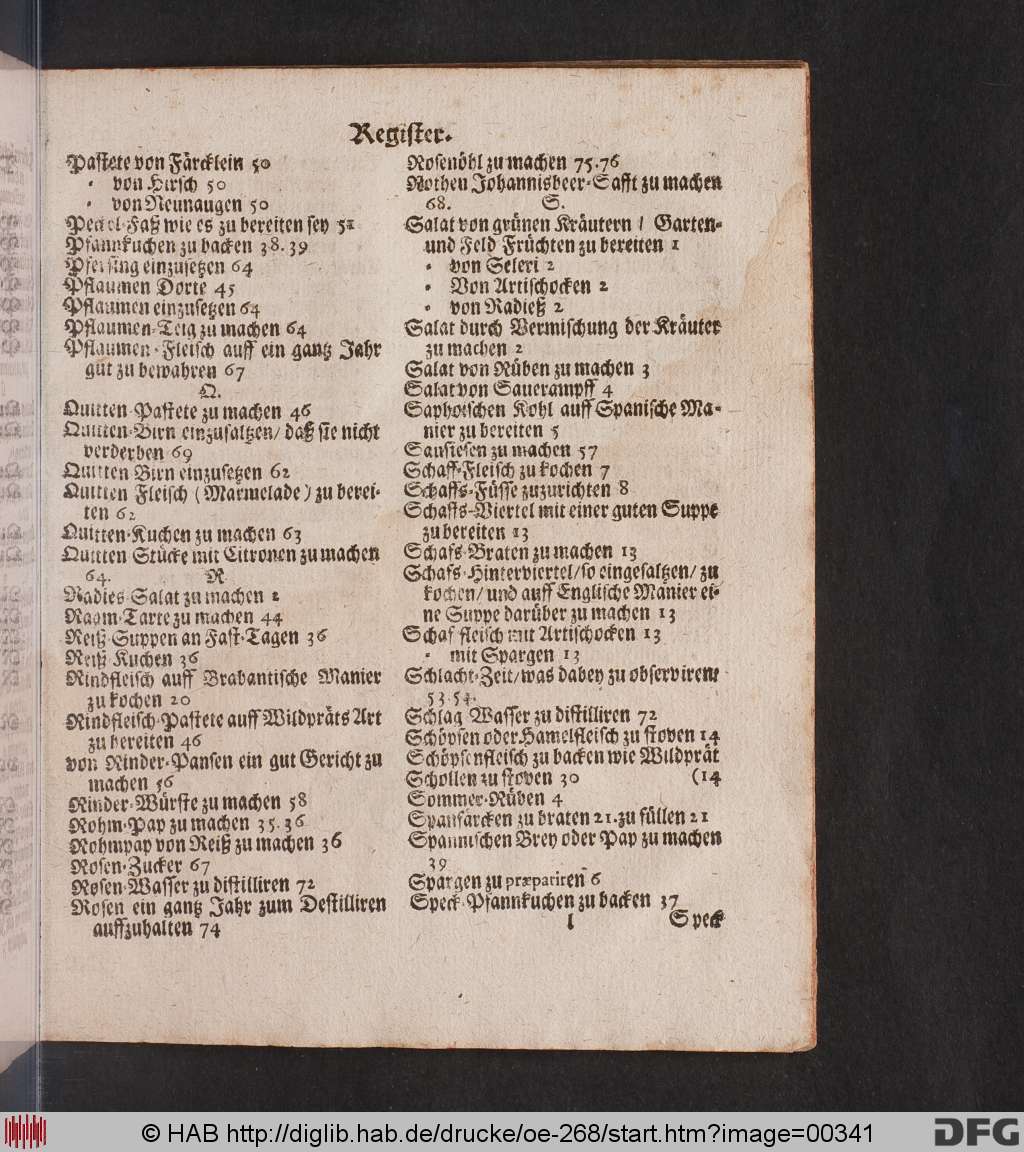 Register.
Pastete von Färcklein 50
⸗ von Hirsch 50
⸗ von Neunaugen 50
Peckel⸗Faß wie es zu bereiten sey 52
Pfannkuchen zu backen 38.39
Pfersing einzusetzen 64
Pflaumen Dorte 45
Pflaumen einzusetzen 64
Pflaumen⸗Teig zu machen 64
Pflaumen⸗Fleisch auff ein gantz Jahr
gut zu bewahren 67
Q.
Quitten⸗Pastete zu machen 46
Quitten⸗Birn einzusaltzen/ daß sie nicht
verderben 69
Quitten Birn einzusetzen 62
Quitten Fleisch (Marmelade) zu berei⸗
ten 62
Quitten⸗Kuchen zu machen 63
Quitten Stücke mit Citronen zu machen
64. R
Radies⸗Salat zu machen 2
Raom⸗Tarte zu machen 44
Reiß⸗Suppen an Fast⸗Tagen 36
Reiß Kuchen 36
Rindfleisch auff Brabantische Manier
zu kochen 20
Rindfleisch⸗Pastete auff Wildpräts Art
zu bereiten 46
von Rinder⸗Pansen ein gut Gericht zu
machen 56
Rinder⸗Würste zu machen 58
Rohm⸗Pap zu machen 35.36
Rohmpap von Reiß zu machen 36
Rosen⸗Zucker 67
Rosen⸗Wasser zu distilliren 72
Rosen ein gantz Jahr zum Destilliren
auffzuhalten 74
Rosenöhl zu machen 75.76
Rothen Johannisbeer⸗Safft zu machen
68. S.
Salat von grünen Kräutern / Garten⸗
und Feld Früchten zu bereiten 1
⸗ von Seleri 2
⸗ Von Artischocken 2
⸗ von Radieß 2
Salat durch Vermischung der Kräuter
zu machen 2
Salat von Rüben zu machen 3
Salat von Sauerampff 4
Saphoischen Kohl auff Spanische Ma⸗
nier zu bereiten 5
Sausiesen zu machen 57
Schaff⸗Fleisch zu kochen 7
Schaffs⸗Füsse zuzurichten 8
Schaffs⸗Viertel mit einer guten Suppe
zu bereiten 13
Schafs⸗Braten zu machen 13
Schafs⸗Hinterviertel/ so eingesaltzen/ zu
kochen/ und auff Englische Manier ei⸗
ne Suppe darüber zu machen 13
Schaf fleisch mit Artischocken 13
⸗ mit Spargen 13
Schlacht⸗Zeit/ was dabey zu observiren
53.54.
Schlag Wasser zu distilliren 72
Schöpsen oder Hamelfleisch zu stoven 14
Schöpsenfleisch zu backen wie Wildprät
Schollen zu stoven 30 (14
Sommer⸗Rüben 4
Spanfärcken zu braten 21. zu füllen 21
Spannischen Brey oder Pap zu machen
39
Spargen zu præpariren 6
Speck⸗Pfannkuchen zu backen 37
l Speck
© HAB http://diglib.hab.de/drucke/oe-268/start.htm?image=00341
DFG